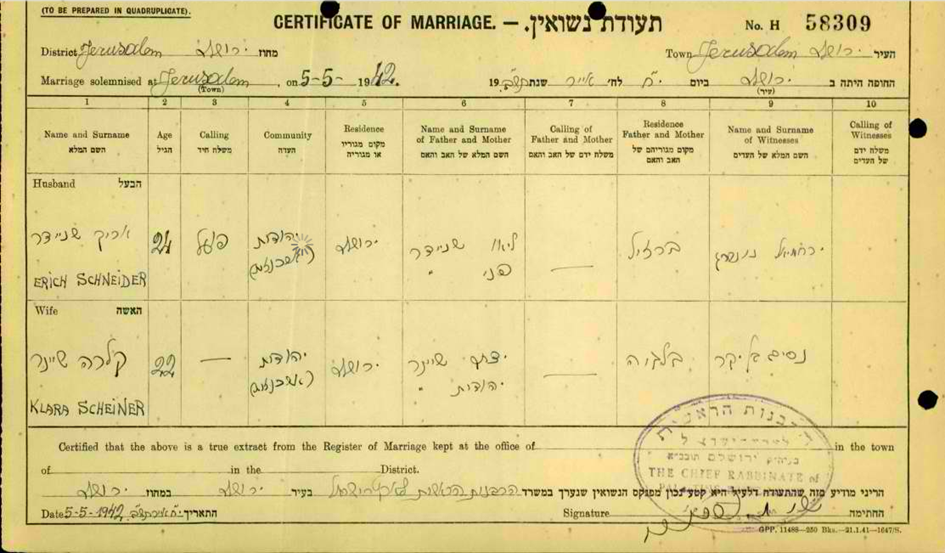 (TO BE PREPARED IN QUADRUPLICATE).
CERTIFICATE OF MARRIAGE. — תעודת נשואין. No. H 58309
District Jerusalem ירושלים מחוז Town Jerusalem ירושלים העיר
Marriage solemnised at Jerusalem, on 5-5- 1942 19 החופה היתה ב ירושלים ביום י"ח לח' אייר שנת תש"ב
(Town) (עיר)
1 2 3 4 5 6 7 8 9 10
Name and Surname Age Calling Community Residence Name and Surname of Father and Mother Calling of Father and Mother Residence Father and Mother Name and Surname of Witnesses Calling of Witnesses
השם המלא הגיל משלח חיד העדה מקום מגוריו או מגוריה השם המלא של האב והאם משלח ידם של האב והאם מקום מגוריהם של האב והאם השם המלא של העדים משלח ידם של העדים
Husband הבעל
אריך שניידר 24 פועל יהודית ירושלים ליאו שניידר — ברזיל ירחמיאל
(אשכנזית) פני "
ERICH SCHNEIDER
Wife האשה
קלרה שיינר 22 — יהודית ירושלים יצחק שיינר — בלגיה נסים
(אשכנזית) יהודית "
KLARA SCHEINER
Certified that the above is a true extract from the Register of Marriage kept at the office of in the town
of in the District.
הריני מודיע בזה שהתעודה דלעיל היא קטע נכון מפנקס הנשואין שנערך במשרד הרבנות הראשית לארץ ישראל בעיר ירושלים במחוז ירושלים
Date 5-5-1942 י"ח אייר תש"ב התאריך Signature החתימה
הרבנות הראשית
THE CHIEF RABBINATE of
GPP. 11488—250 Bks.—21.1.41—1047/S.